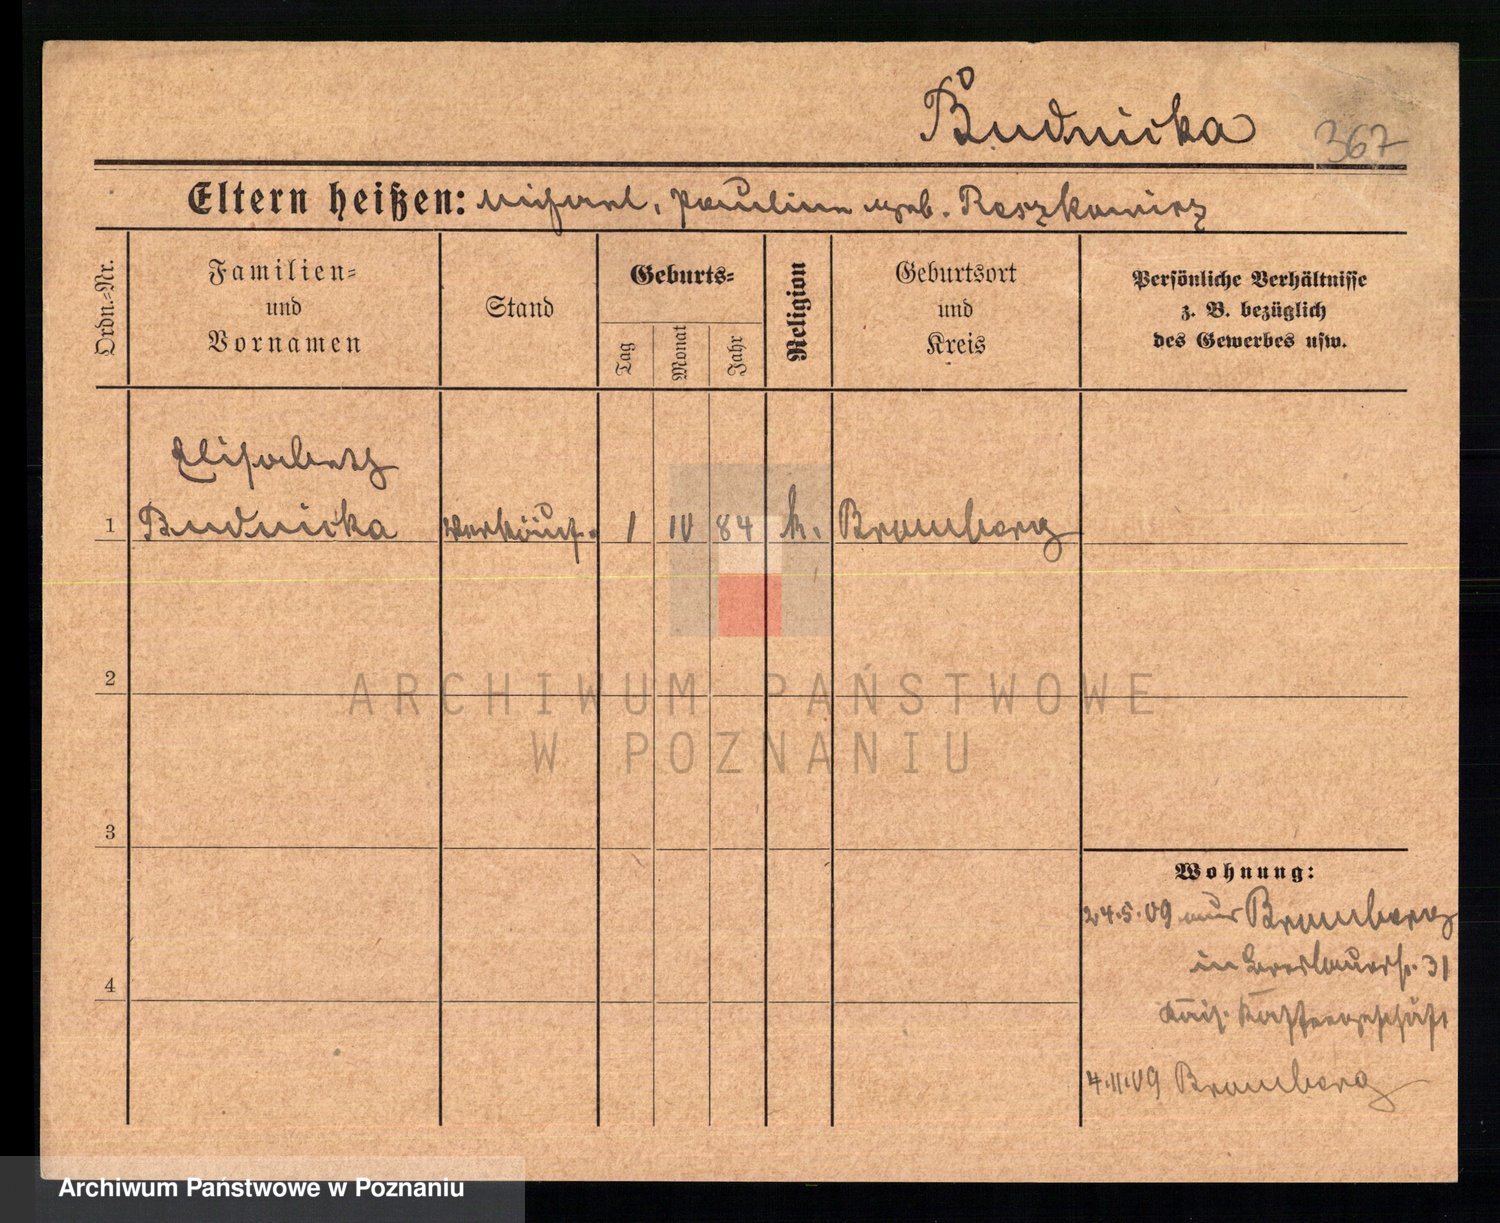 Budnicka
367
Eltern heißen: Michael, Pauline geb. Reszkowicz
Ordn.-Nr.
Familien-
und
Vornamen
Stand
Geburts-
Tag
Monat
Jahr
Religion
Geburtsort
und
Kreis
Persönliche Verhältnisse
z. B. bezüglich
des Gewerbes usw.
Elisabeth
1 Budnicka Verkäuf. 1 IV 84 k. Bromberg
2
ARCHIWUM PAŃSTWOWE
W POZNANIU
3
Wohnung:
24.5.09 aus Bromberg
in Breslauerstr. 31
4
Kais. Kaffeegeschäft
4.11.09 Bromberg
Archiwum Państwowe w Poznaniu